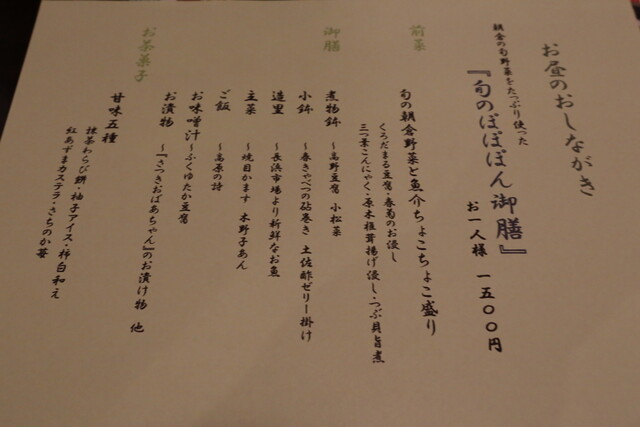 お昼のおしながき
朝倉の旬野菜をたっぷり使った
『旬のぽぽぽん御膳』
お一人様 一五〇〇円
前菜
旬の朝倉野菜と魚介ちょこちょこ盛り
くろだまる豆腐・春菊のお浸し
三つ葉こんにゃく・原木椎茸揚げ浸し・つぶ貝旨煮
御膳
煮物鉢 ～高野豆腐 小松菜
小鉢 ～春きゃべつの砧巻き 土佐酢ゼリー掛け
造里 ～長浜市場より新鮮なお魚
主菜 ～焼目かます 木野子あん
ご飯 ～高原の詩
お味噌汁～ふくゆたか豆腐
お漬物 ～『さつきおばあちゃん』のお漬け物 他
お茶菓子
甘味五種
抹茶わらび餅・柚子アイス・柿白和え
紅あずまカステラ・さちのか苺